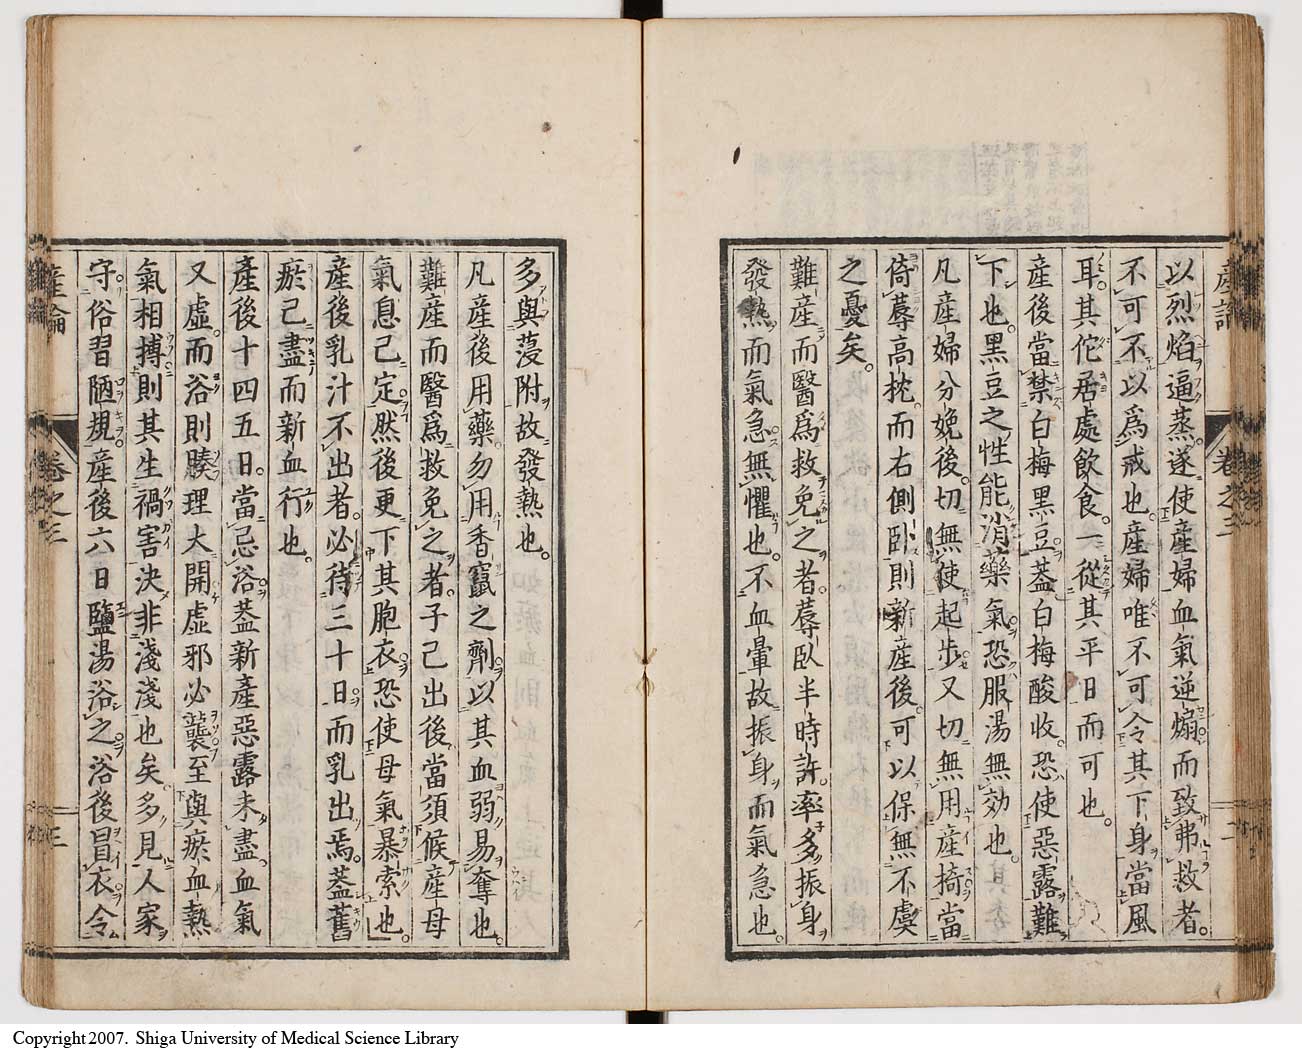 產論
卷之三
二
以烈焰逼蒸遂使產婦血氣逆煽而致弗救者。
不可不以爲戒也。產婦唯不可令其下身當風
耳。其佗居處飲食。一從其平日而可也。
產後當禁白梅黑豆。葢白梅酸收。恐使惡露難
下也。黑豆之性能消藥氣。恐服湯無効也。
凡產婦分娩後。切無使起步。又切無用產椅。當
倚蓐高枕。而右側臥。則新產後。可以保無不虞
之憂矣。
難產而醫爲救免之者。蓐臥半時許。率多振身
發熱而氣急。無懼也。不血暈故振身而氣急也。
多與蔆附。故發熱也。
凡產後用藥。勿用香竄之劑。以其血弱易奪也。
難產而醫爲救免之者。子已出後。當須候產母
氣息已定。然後更下其胞衣。恐使母氣暴索也。
產後乳汁不出者。必待三十日。而乳出焉。葢舊
瘀已盡而新血行也。
產後十四五日。當忌浴。葢新產惡露未盡。血氣
又虛。而浴則腠理大開。虛邪必襲至。與瘀血熱
氣相搏。則其生禍害。決非淺淺也矣。多見人家
守俗習陋規。產後六日。鹽湯浴之。浴後冒衣。令
產論
卷之三
三
Copyright 2007. Shiga University of Medical Science Library